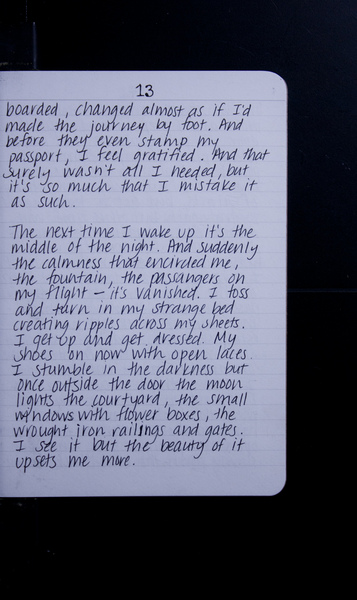 13
boarded, changed almost as if I'd
made the journey by foot. And
before they even stamp my
passport, I feel gratified. And that
surely wasn't all I needed, but
it's so much that I mistake it
as such.
The next time I wake up it's the
middle of the night. And suddenly
the calmness that encircled me,
the fountain, the passangers on
my flight – it's vanished. I toss
and turn in my strange bed
creating ripples across my sheets.
I get up and get dressed. My
shoes on now with open laces.
I stumble in the darkness but
once outside the door the moon
lights the courtyard, the small
windows with flower boxes, the
wrought iron railings and gates.
I see it but the beauty of it
upsets me more.